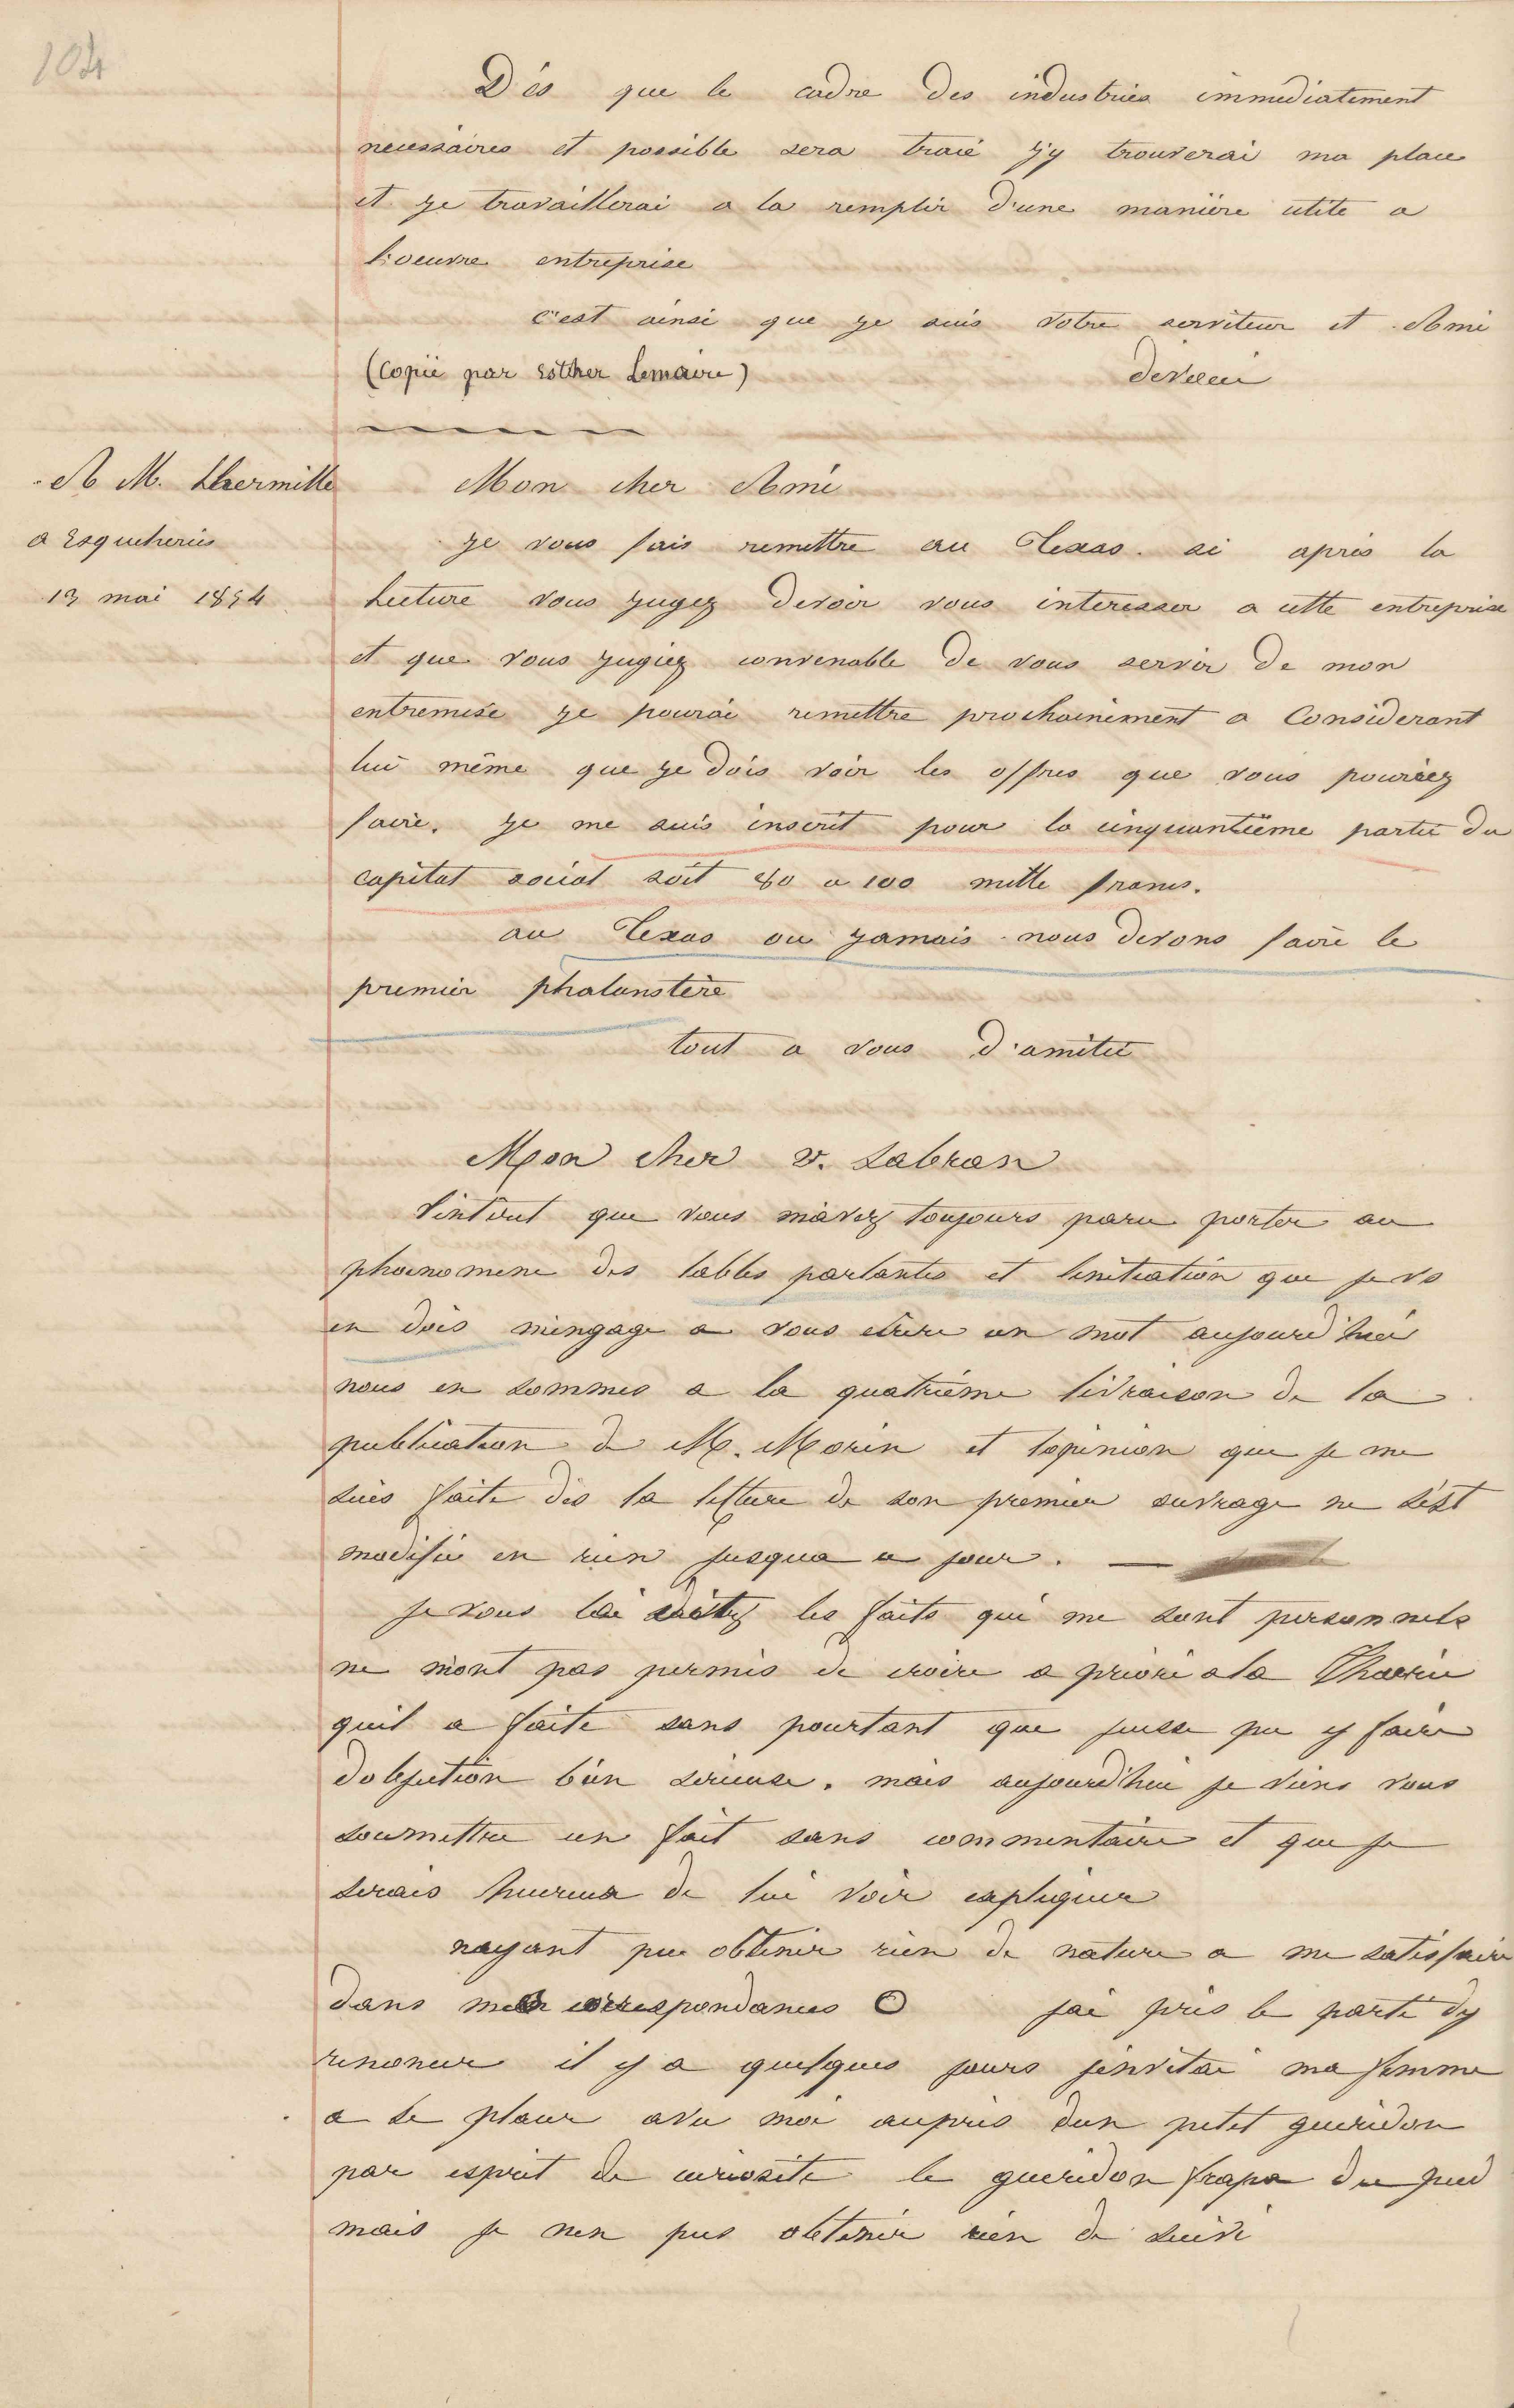 104
Dès que le cadre des industries immediatement
necessaires et possible sera tracé j'y trouverai ma place
et je travaillerai a la remplir d'une manière utile a
l'oeuvre entreprise
c'est ainsi que je suis votre serviteur et Ami
(Copié par Esther Lemaire)
devoué
A M. Lhermitte
a Esqueheries
13 mai 1854
Mon cher Ami
je vous fais remettre au Texas. si après la
lecture vous jugez devoir vous interesser a cette entreprise
et que vous jugiez convenable de vous servir de mon
entremise je pourai remettre prochainement a Considerant
lui même que je dois voir les offres que vous pouriez
faire. je me suis inscrit pour la cinquantième partie du
capital social soit 80 a 100 mille francs.
au Texas ou jamais nous devons faire le
premier phalanstère
tout a vous d'amitié
Mon cher v. Labran
que vous mavez toujours paru porter au
phoenomene des tables parlantes et linitiation que je vs
en dois mengage a vous ecrire un mot aujourd'hui
nous en sommes a la quatrième livraison de la
publication de M. Morin et lopinion que je me
suis faite dès la lecture de son premier ouvrage ne sest
modifié en rien jusqua ce jour.
je vous les faits qui me sont personnels
ne mont pas permis de croire a priori a la Thaorie
quil a faite sans pourtant que jeusse pu y faire
dobjection bien serieuse. mais aujourd'hui je viens vous
soumettre un fait sans commentaire et que je
serais heureux de lui voir expliquer
nayant pu obtenir rien de nature a me satisfaire
dans mes correspondances jai pris le parti dy
renoncer il y a quelques jours jinvitai ma femme
a se placer avec moi auprès dun petit gueridon
par esprit de curiosité le gueridon frapa du pied
mais je nen pus obtenir rien de suivi